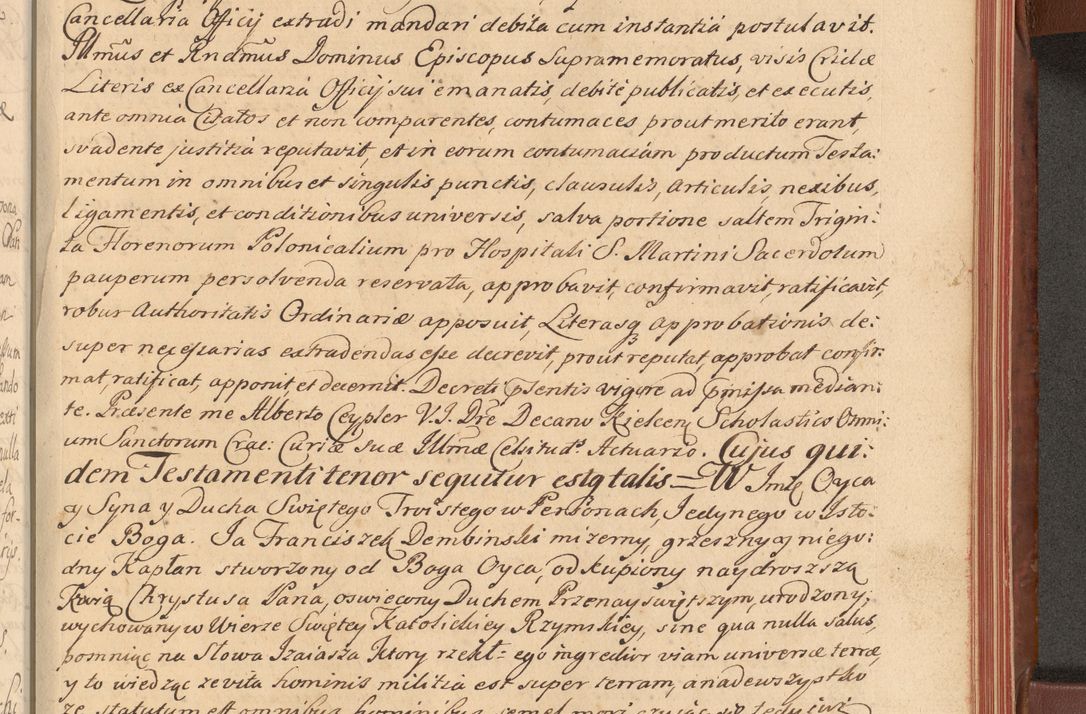 Cancellaria Officij extradi mandari debita cum instantia postulavit.
Illmus et Rndmus Dominus Episcopus supramemoratus, visis Cridæ
Literis ex Cancellaria Officij sui emanatis, debite publicatis, et executis,
ante omnia Citatos et non comparentes, contumaces prout merito erant,
svadente justitia reputavit, et in eorum contumaciam productum Testa:
mentum in omnibus et singulis punctis, clausulis, articulis, nexibus,
ligamentis, et conditionibus universis, salva portione saltem Trigin:
ta Florenorum Polonicalium pro Hospitali S. Martini Sacerdotum
pauperum persolvenda reservata, approbavit, confirmavit, ratificavit,
robur Authoritatis Ordinariæ apposuit, Literasq3 approbationis de:
super necessarias extradendas esse decrevit, prout reputat, approbat confir:
mat, ratificat, apponit et decernit. Decreti psentis vigore ad pmissa median:
te. Præsente me Alberto Ceypler V.J. Dre Decano Kielcen, Scholastico Omni:
um Sanctorum Crac: Curiæ suæ Illmæ Celsituds Actuario. Cujus qui:
dem Testamenti tenor sequitur estq talis = W Imię Oyca
y Syna y Ducha Swiętego Troistego w Personach, Jedynego w Isto:
cie Boga. Ja Franciszek Dembinski mizerny, grzeszny y niego:
dny Kapłan stworzony od Boga Oyca, odkupiony naydroszszą
Krwią Chrystusa Pana, oswiecony Duchem Przenayswiętszym, urodzony,
wychowany w Wierze Swiętey Katolickiey Rzymskiey, sine qua nulla salus,
pomniąc na Słowa Izaiasza ktory rzekł = ego ingredior viam universæ terræ,
y to wiedząc ze vita hominis militia est super terram, a nadewszystko
ze statutum est omnibus hominibus semel mori